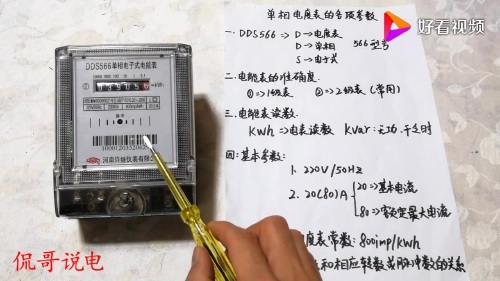 好看视频
单相电度表的各项参数
一.DDS566 => D → 电度表
D → 单相 566型号
S → 电子式
二.电能表的准确度
①=>1级表 ②=>2级表(常用)
三.电能表读数
KWh => 电表读数 KVar:无功.千乏时
四:基本参数:
1. 220V/50Hz
2. 20(80)A
20=>基本电流
80=>额定最大电流
度表常数:800imp/kWh
和相应转数或脉冲数的关系
DDS566单相电子式电能表
kWh
河南许继仪表有限公司
侃哥说电